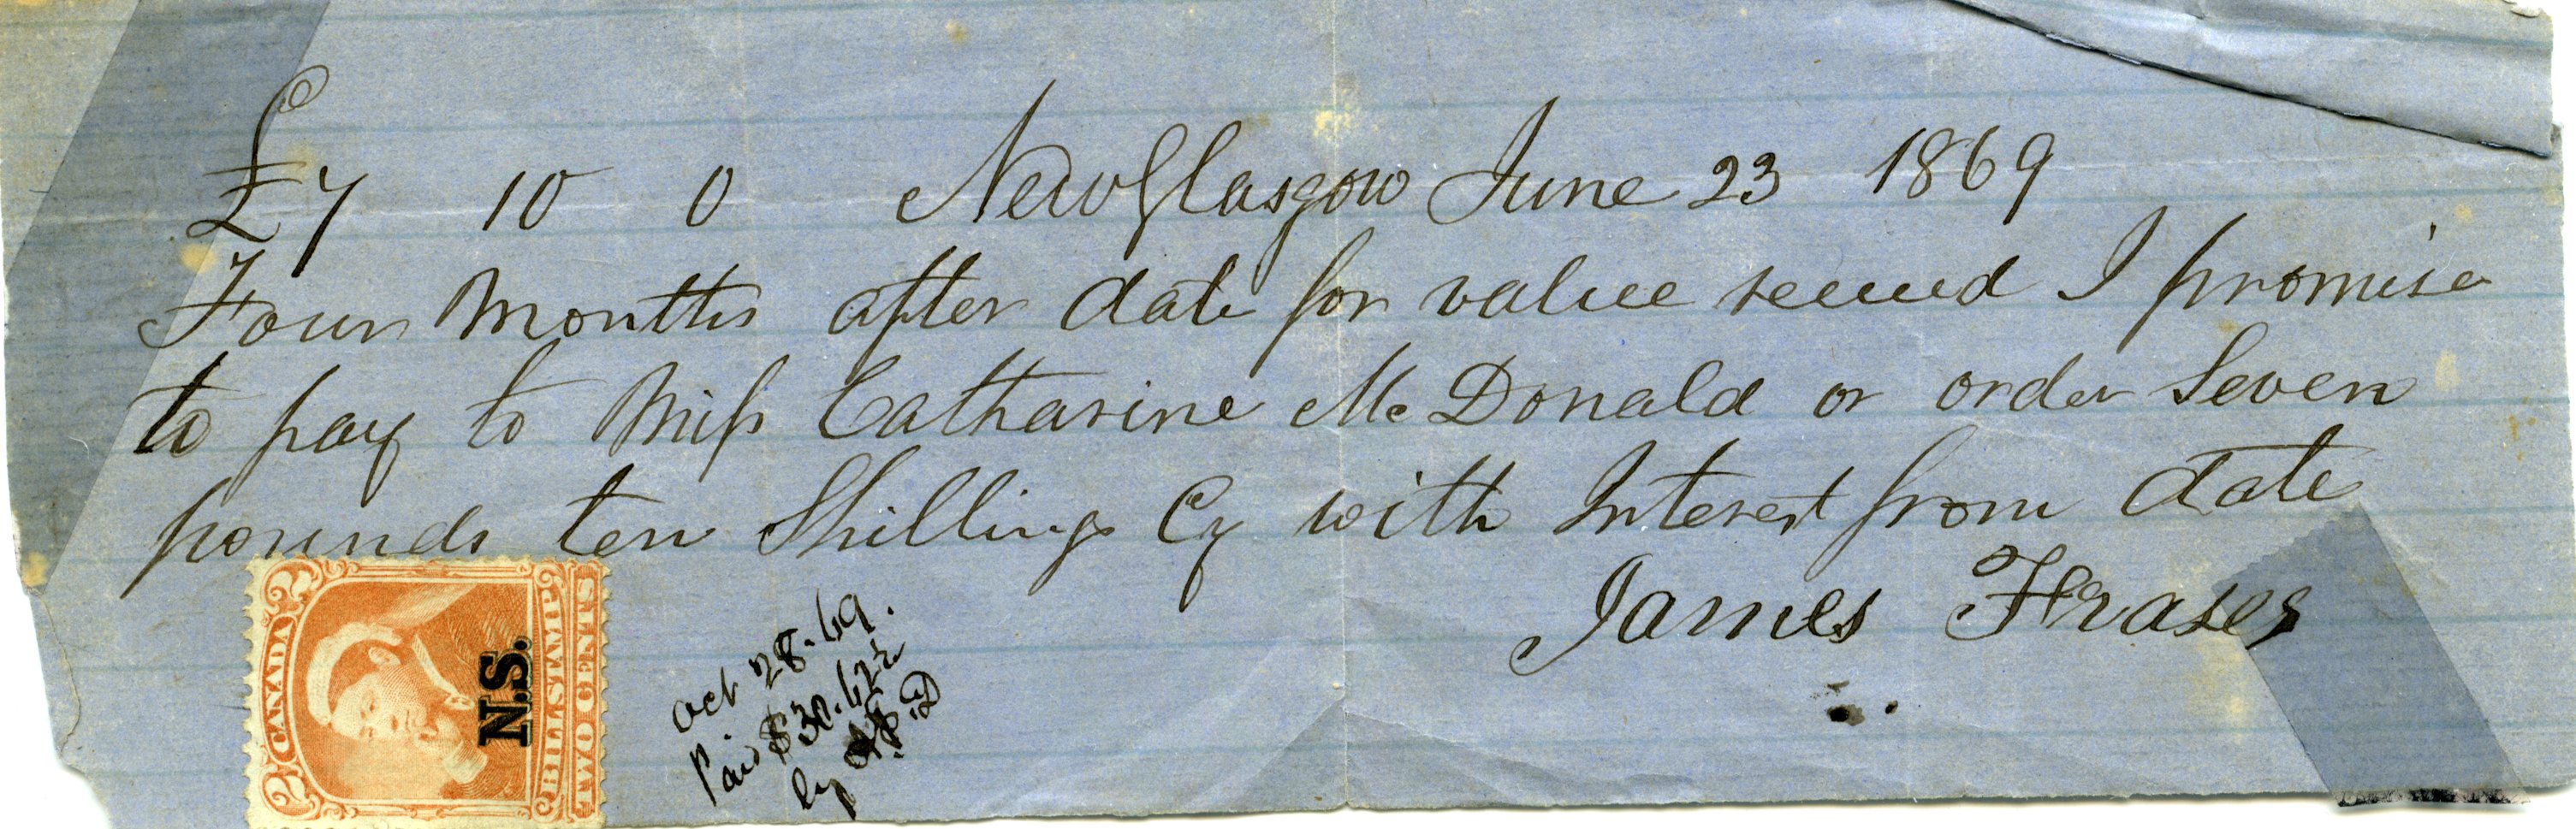 £7 10 0 New Glasgow June 23 1869
Four Months after date for value received I promise
to pay to Miss Catharine McDonald or order Seven
pounds ten Shillings Cy with Interest from date
James Fraser
Oct 28. 69.
Paid $30.62½
by
CANADA
BILL STAMP
TWO CENTS
2
2
N.S.